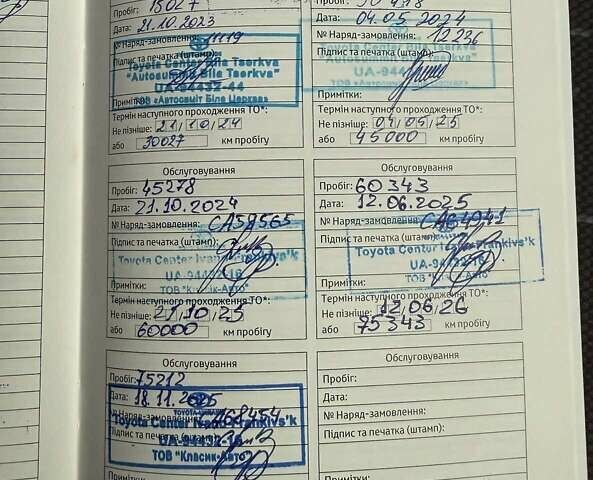 Пробіг: 15027
Дата: 21.10.2023
№ Наряд-замовлення: 11119
Підпис та печатка (штамп):
Toyota Center Bila Tserkva
"Autosummit Bila Tserkva"
UA-94432-44
ТОВ «Автосаміт Біла Церква»
Примітки:
Термін наступного проходження ТО*:
Не пізніше: 21/10/24
або 30027 км пробігу
Дата: 04.05.2024
№ Наряд-замовлення: 12236
Підпис та печатка (штамп):
Toyota Center Bila Tserkva
"Autosummit Bila Tserkva"
UA-944
Примітки:
Термін наступного проходження ТО*:
Не пізніше: 04/05/25
або 45000 км пробігу
Обслуговування
Пробіг: 45278
Дата: 21.10.2024
№ Наряд-замовлення: CA59565
Підпис та печатка (штамп):
Toyota Center Ivano-Frankivs'k
UA-94432-16
ТОВ "Класик-Авто"
Примітки:
Термін наступного проходження ТО*:
Не пізніше: 21/10/25
або 60000 км пробігу
Обслуговування
Пробіг: 60343
Дата: 12.06.2025
№ Наряд-замовлення: CA64041
Підпис та печатка (штамп):
Toyota Center Ivano-Frankivs'k
UA-94432-16
ТОВ "Класик-Авто"
Примітки:
Термін наступного проходження ТО*:
Не пізніше: 12/06/26
або 75343 км пробігу
Обслуговування
Пробіг: 75212
Дата: 18.11.2025
№ Наряд-замовлення: CA68454
Toyota Center Ivano-Frankivs'k
Підпис та печатка (штамп):
UA-94432-16
ТОВ "Класик-Авто"
Примітки:
Обслуговування
Пробіг:
Дата:
№ Наряд-замовлення:
Підпис та печатка (штамп):
Примітки: